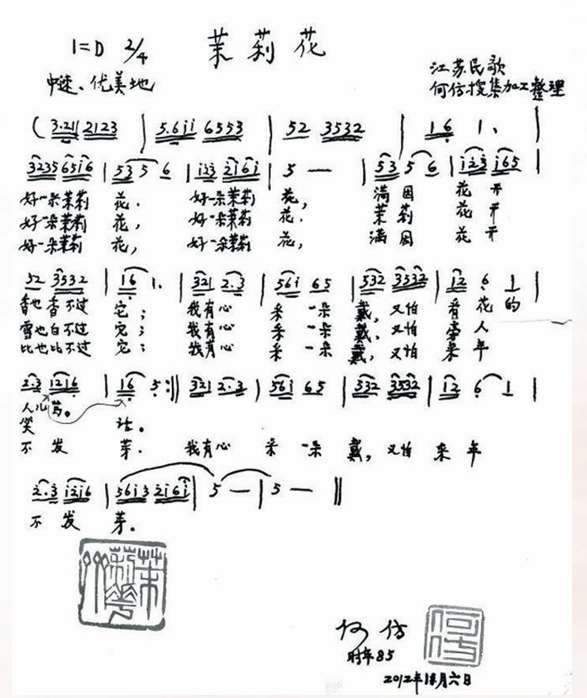 1=D 2/4 茉莉花
中速、优美地
江苏民歌
何仿搜集加工整理
( 3·21 2123 | 5.6i7 6553 | 52 3532 | 16 1. |
3235 65i6 | 53 5 6 | i23 2i6i | 5 — | 53 5 6 | i23 i65 |
好一朵茉莉 花, 好一朵茉莉 花, 满园 花 开
好一朵茉莉 花, 好一朵茉莉 花, 茉莉 花 开
好一朵茉莉 花, 好一朵茉莉 花, 满园 花 开
52 3532 | 16 1. | 321 2.3 | 56i 65 | 532 3532 | 12 6 1 |
香也香不过 它; 我有心 采 一朵 戴, 又怕 看 花 的
雪也白不过 它; 我有心 采 一朵 戴, 又怕 旁 人
比也比不过 它; 我有心 采 一朵 戴, 又怕 来 年
2.3 1216 | 16 5 :|| 321 2.3 | 56i 65 | 332 3532 | 12 6 1 |
人儿 骂。
笑 话。
不 发 芽. 我有心 采 一朵 戴, 又怕 来 年
2.3 1216 | 56i3 2i6i | 5 — | 5 — ||
不 发 芽.
茉莉花
何仿
时年85
2012年